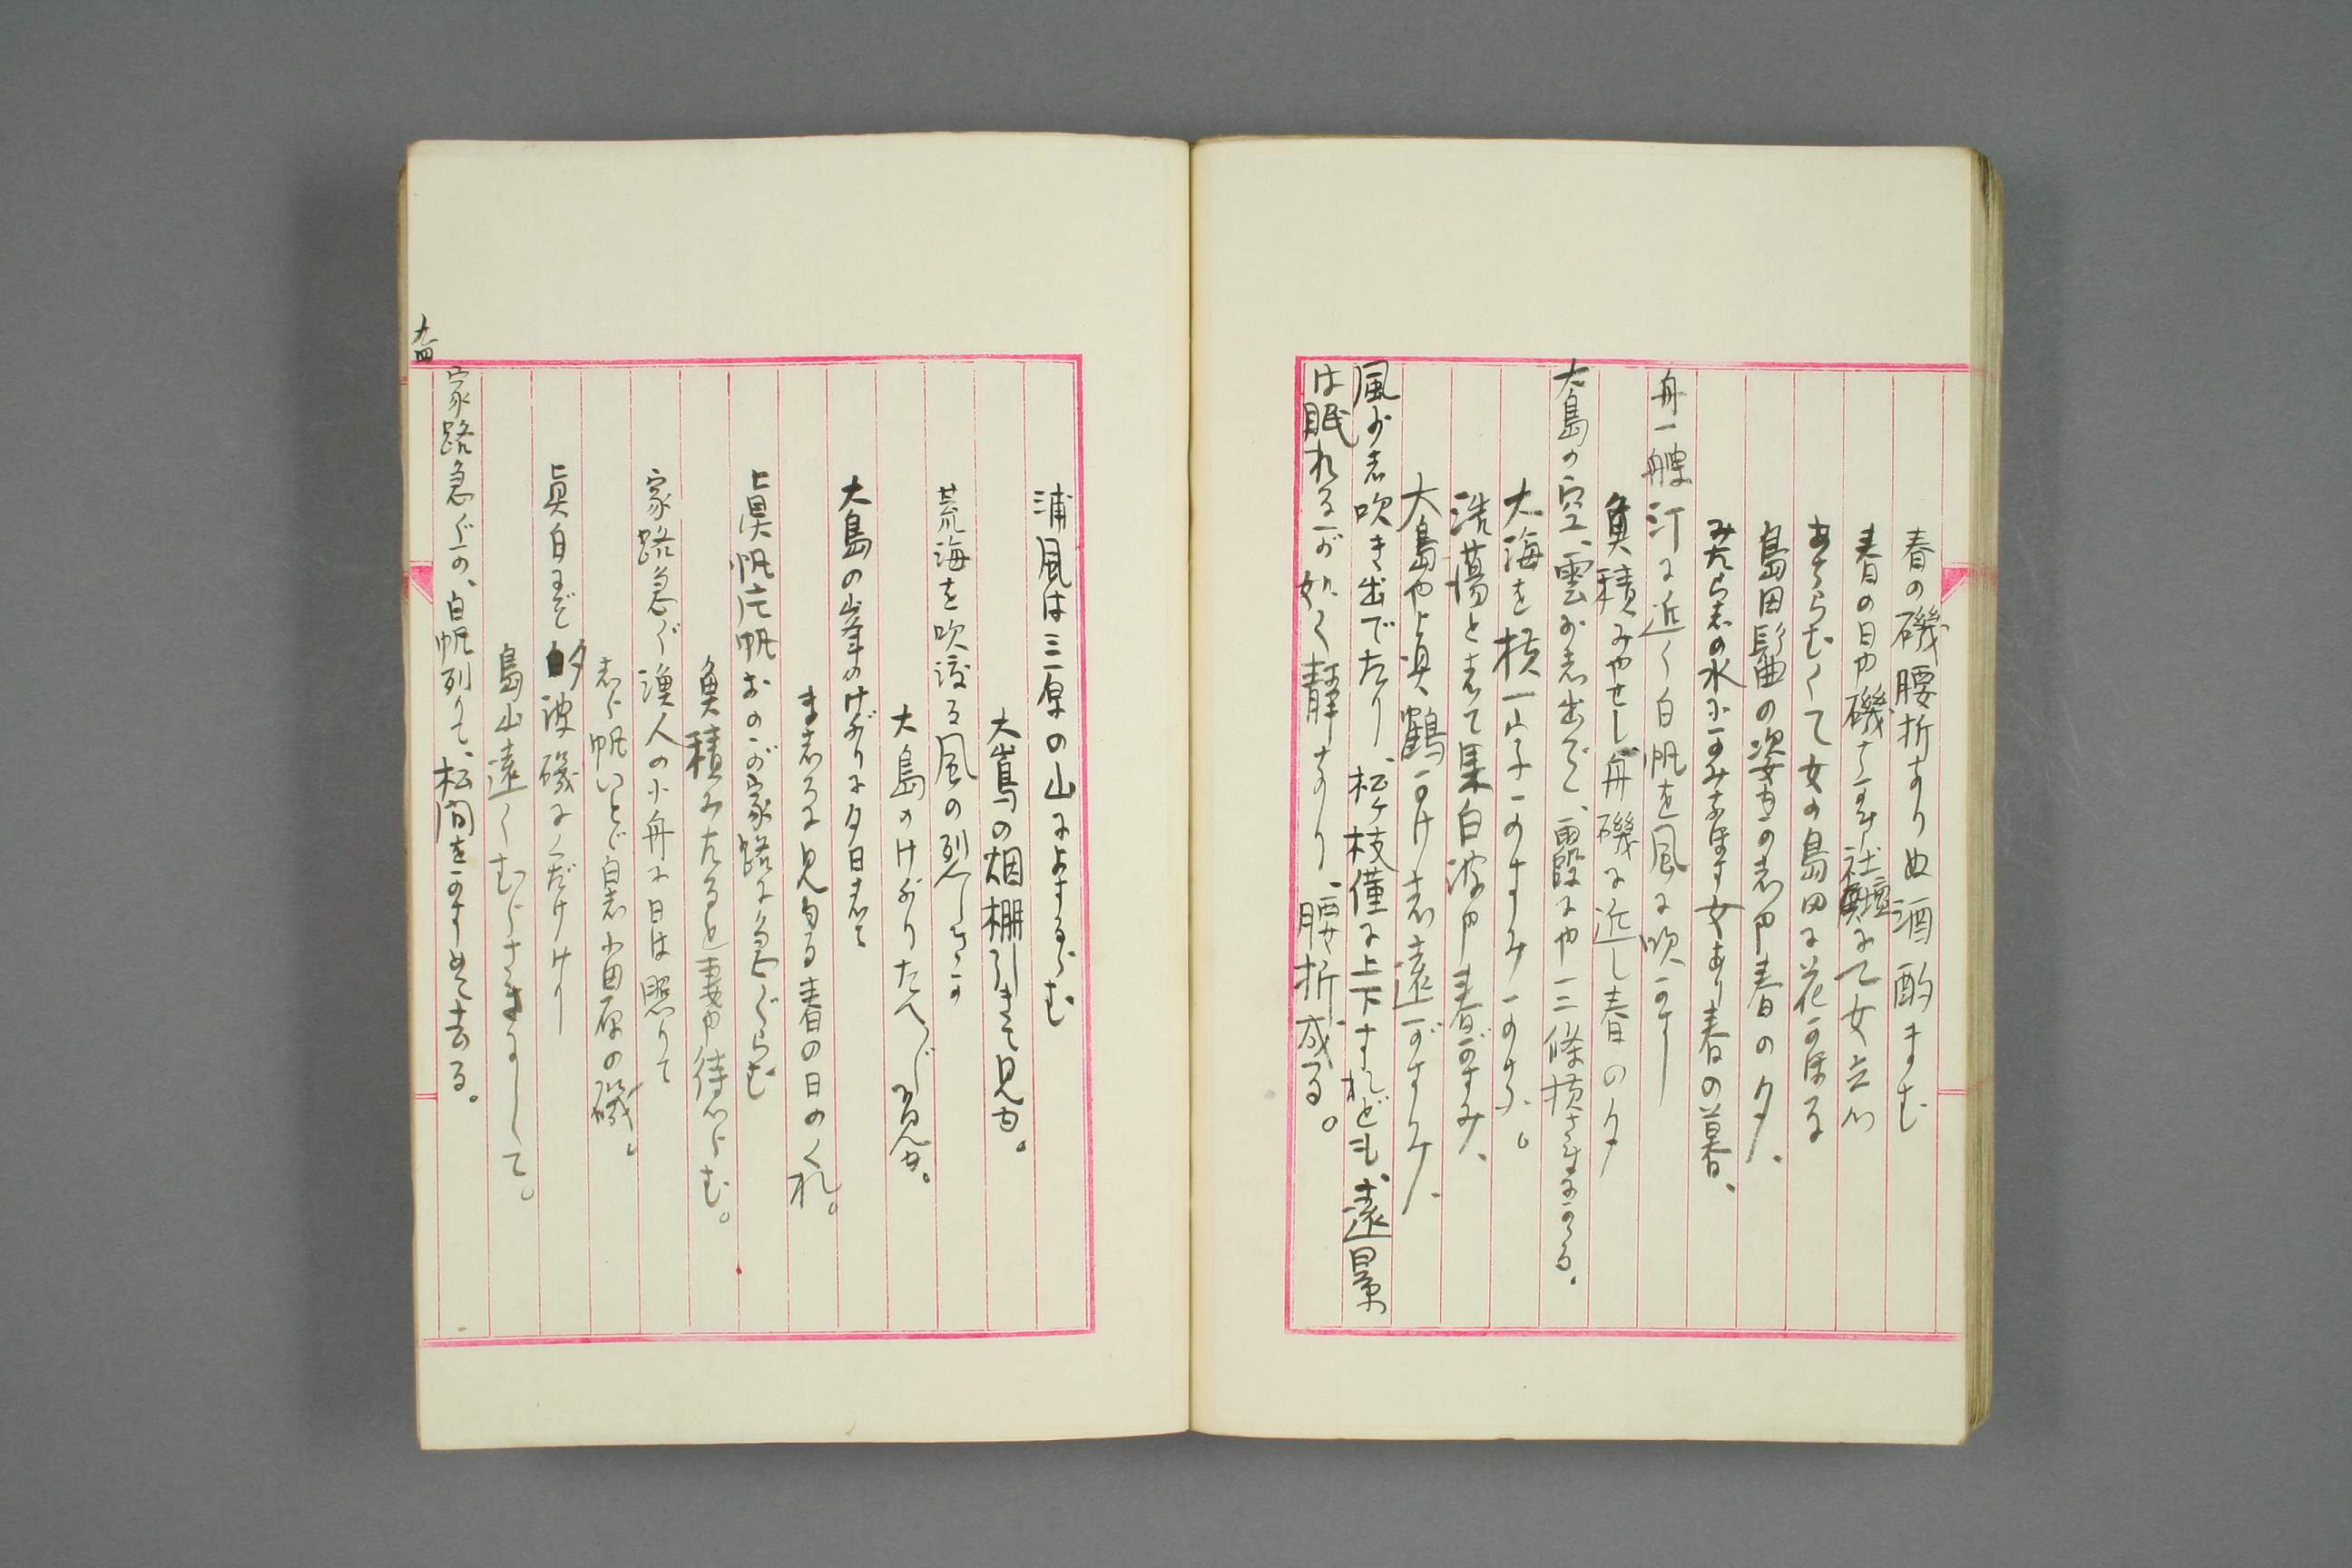 春の磯腰折ありぬ酒酌まむ
春の日や磯
あちらむくて女の島田に花かほる
島田髷の姿
みたらしの水にかみなほす女あり春の暮、
舟一艘汀に近く白帆を風に吹かす
魚積みやせし舟磯に近し春の夕
大島の空、雲おし出でて、霞にや二三條横さまにかゝる。
大海を横一文字にかすみかな。
浩蕩として巣白波や春がすみ、
大島や眞鶴かけし遠がすみ、
風少し吹き出でたり、松ヶ枝僅に上下すれども、遠景
は眠れるが如く静なり、腰折成る。
浦風は三原の山によするらむ
大嶌の烟棚引きて見ゆ。
荒海を吹渡る風の烈しさに
大島のけぶりたへ〲見ゆ。
大島の峯のけぶりに夕日して
ましろに見ゆる春の日のくれ。
眞帆片帆おのが家路に急ぐらむ
魚積みたると妻や待つらむ。
家路急ぐ漁人の小舟に日は照りて
しら帆いとど白し小田原の磯。
眞白まで夕波磯にくだけけり
島山遠くむらさきにして。
家路急ぐか、白帆列りて、松間をかすめて去る。
九四